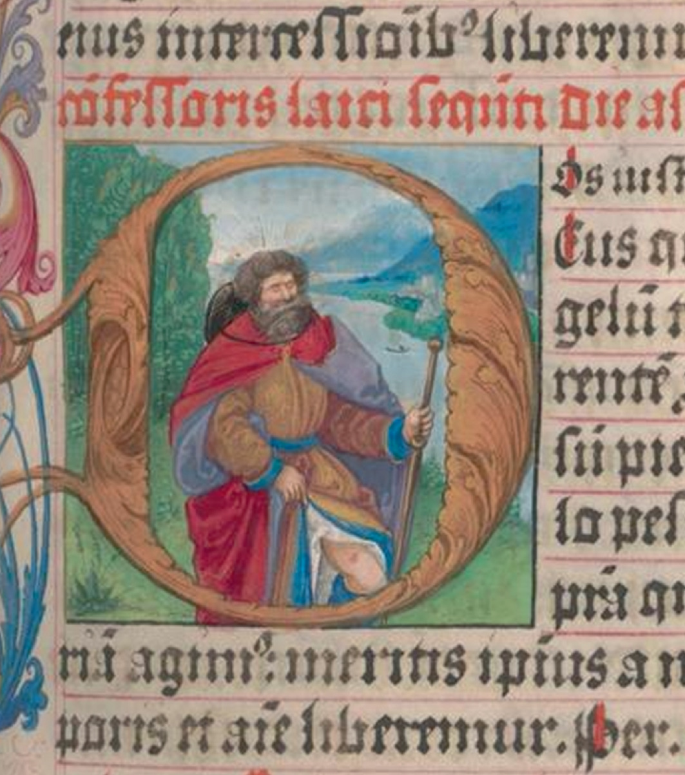 eius intercessioib⁹ liberemu
cōfessoris laici sequēti die as
Os iust
D
Eus qu
gelū t
rentē
sū pie
lo pes
prā qu
riā agim⁹: meritis ipius a m
poris et aīe liberemur. Per.